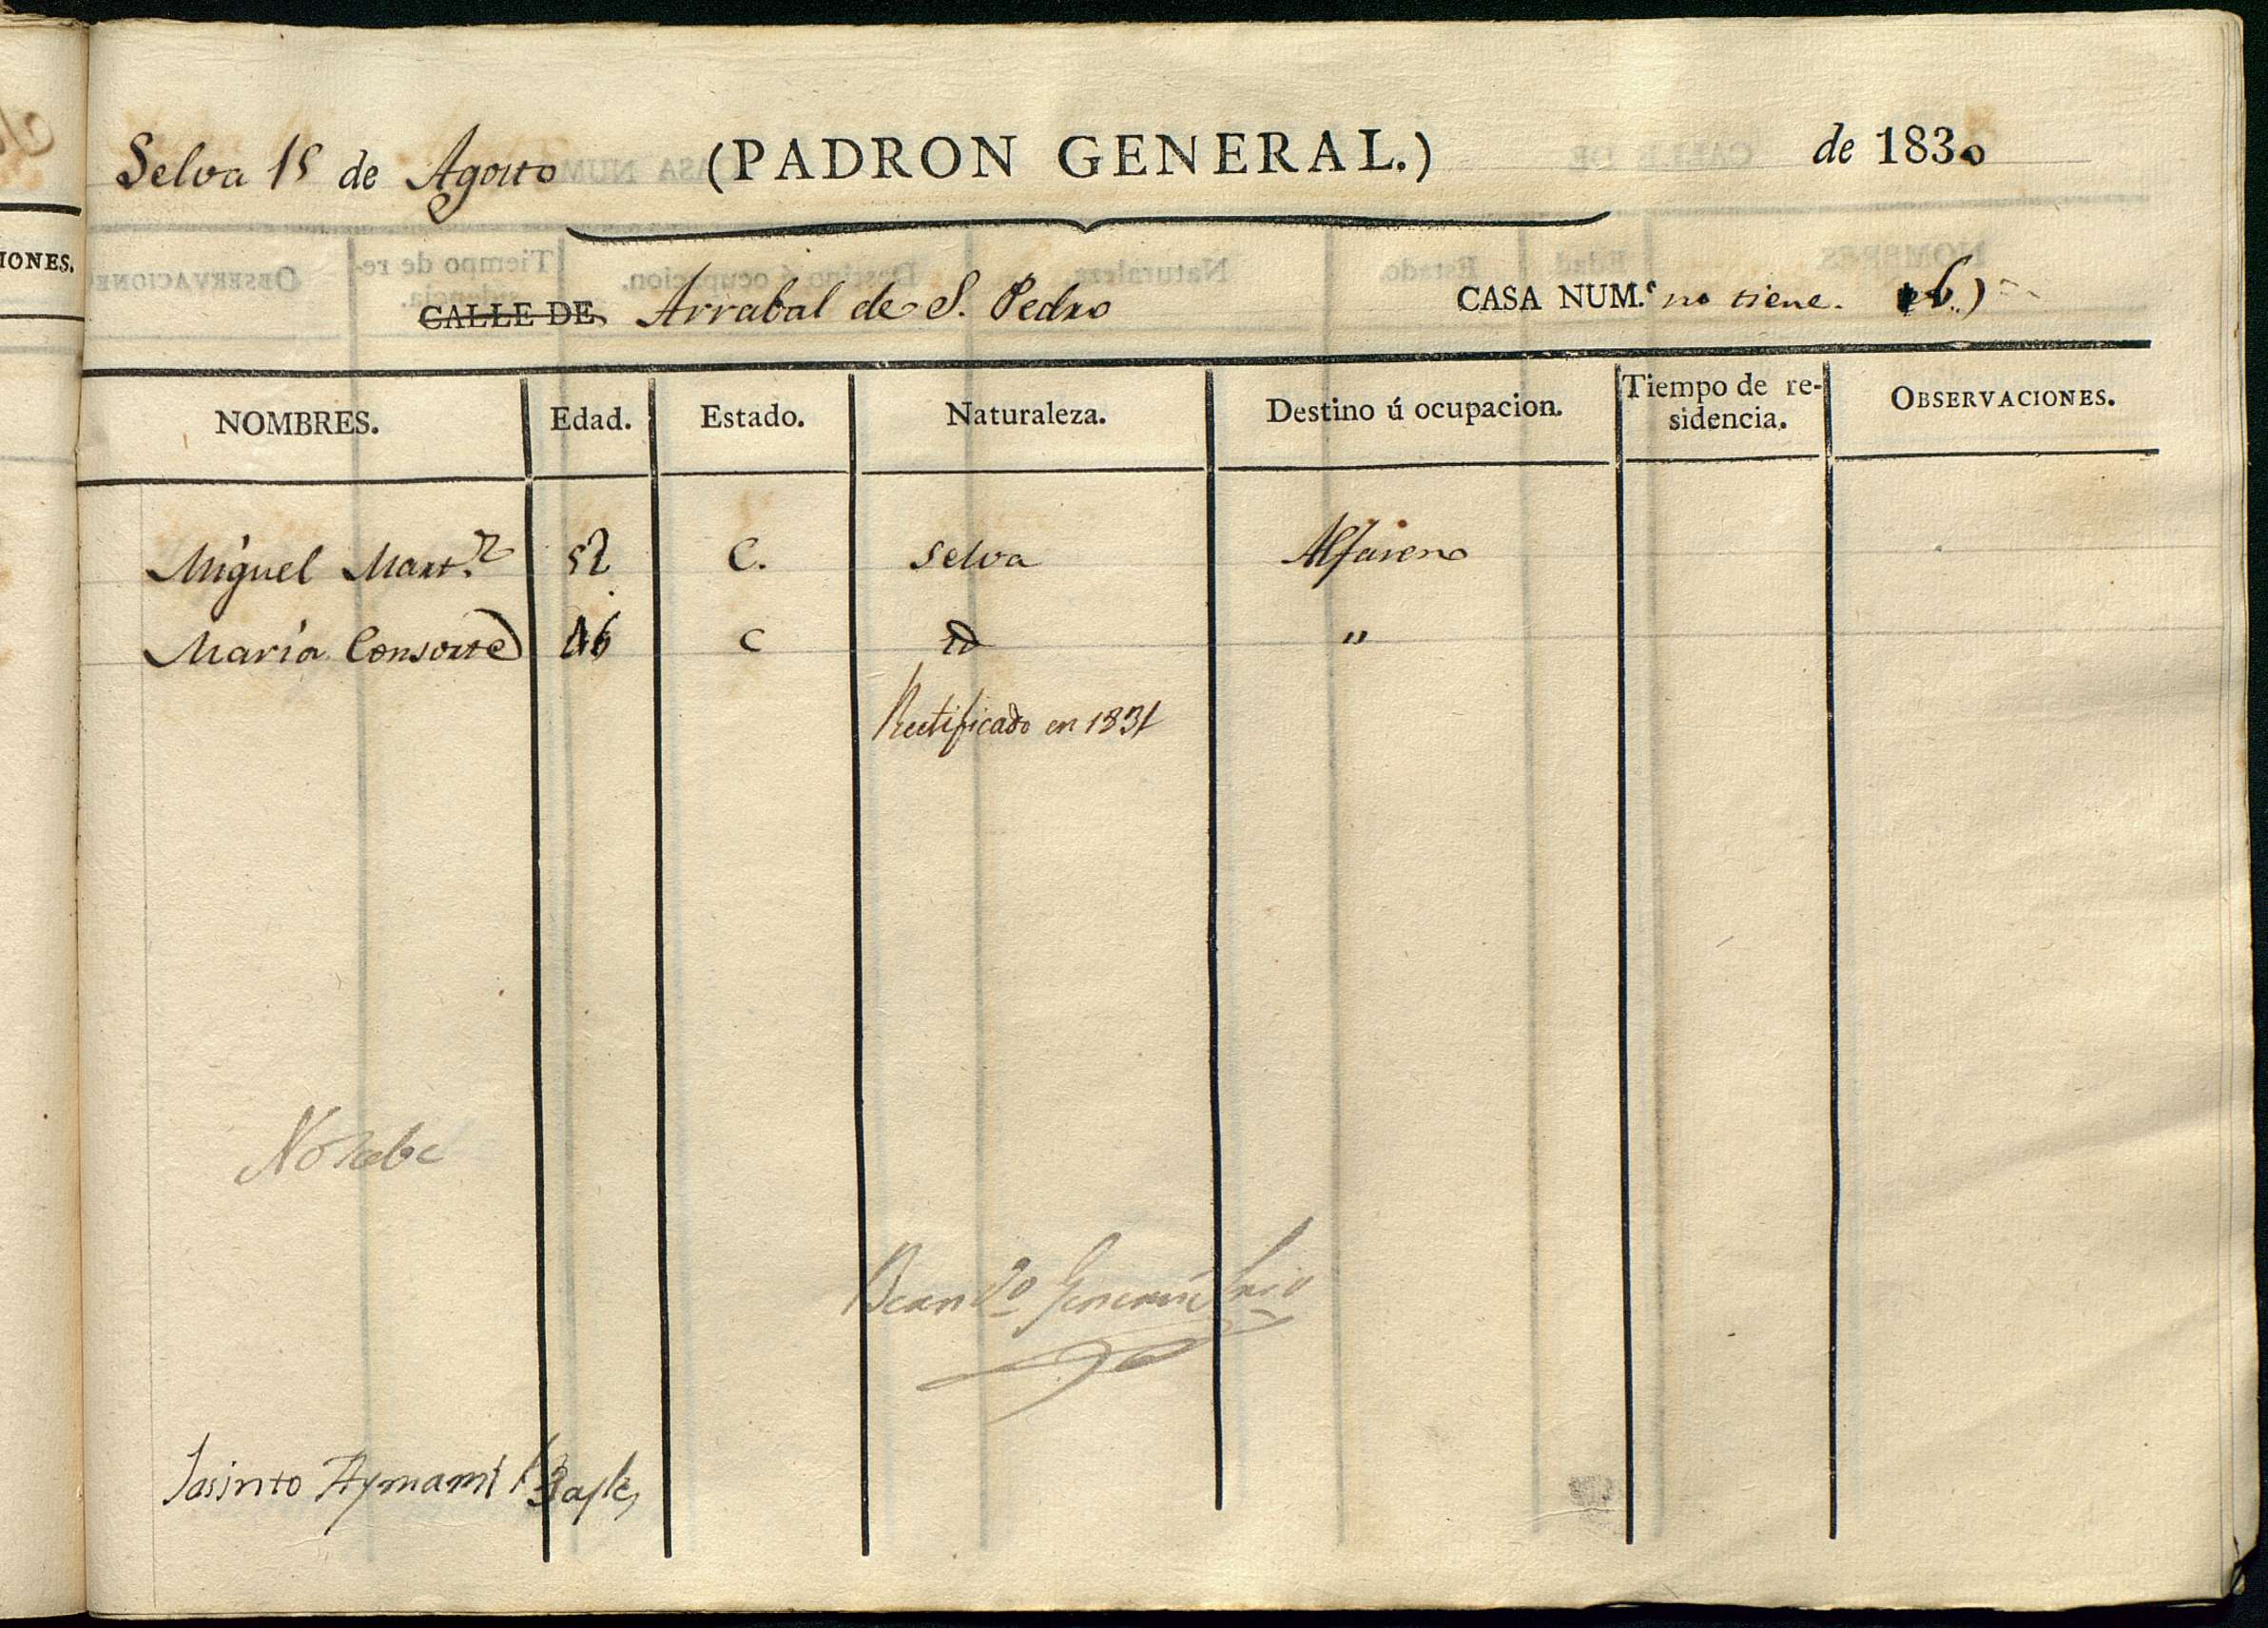 Selva 15 de Agosto (PADRON GENERAL.) de 1830
IONES.
CALLE DE Arrabal de S. Pedro CASA NUM.º no tiene. 6.)
NOMBRES. Edad. Estado. Naturaleza. Destino ú ocupacion. Tiempo de re- OBSERVACIONES.
sidencia.
Miguel Mart.z 52 C. Selva Alfarero
Maria Consorte 46 C id "
Rectificado en 1831
Jasinto Aymami Bayle